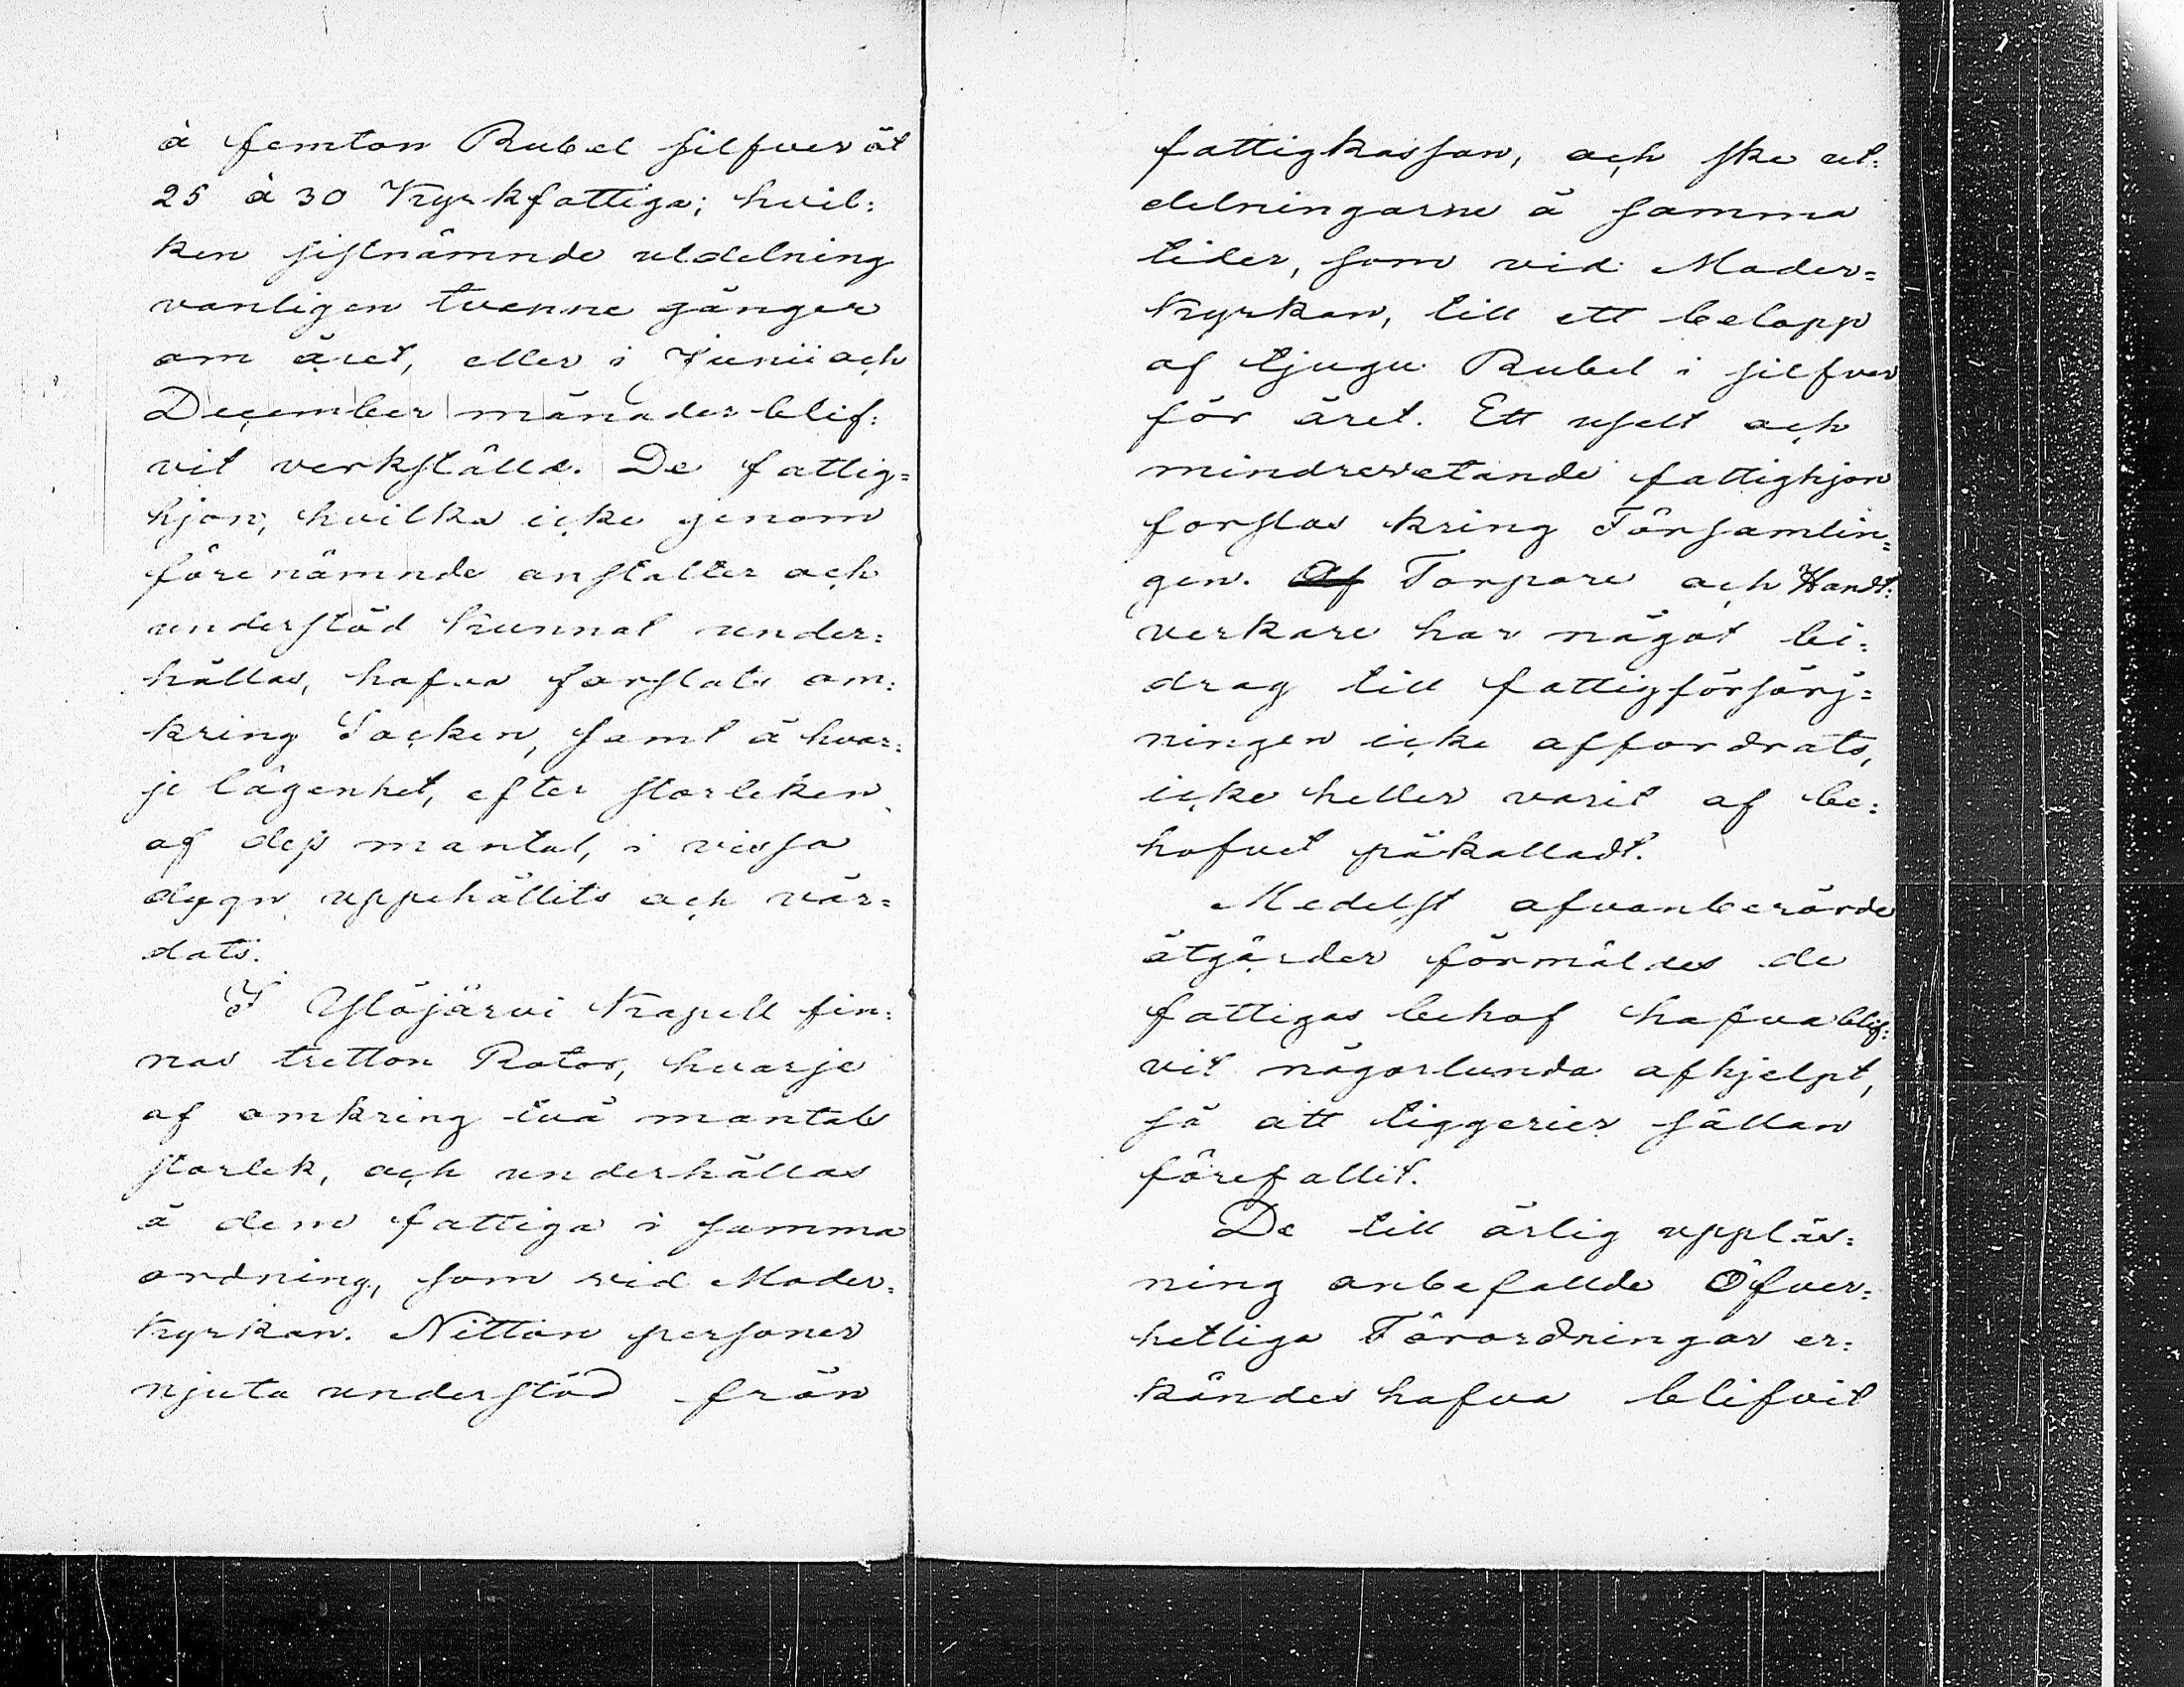 à femton Rubel silfver åt
25 à 30 Kyrkfattiga; hvil:
ken sistnämnde utdelning
vanligen tvenne gånger
om året, eller i Junii och
December månader blif:
vit verkställd. De fattig=
hjon, hvilka icke genom
förenämnde anstalter och
understöd kunnat under:
hållas, hafva forslats om:
kring Socken, samt å hvar:
je lägenhet, efter storleken
af dess mantal, i vissa
dygn uppehållits och vår=
dats.
I Ylöjärvi Kapell fin:
nas tretton Rotor, hvarje
af omkring två mantals
storlek, och underhållas
å dem fattiga i samma
ordning, som vid Moder:
kyrkan. Nitton personer
njuta understöd från
fattigkassan, och ske ut:
delningarne å samma
tider, som vid Moder=
kyrkan, till ett belopp
af tjugu Rubel i silfver
för året. Ett uselt och
mindrevetande fattighjon
forslas kring Församlin=
gen. Af Torpare och Handt:
verkare har något bi:
drag till fattigförsörj=
ningen icke affordrats,
icke heller varit af be:
hofvet påkalladt.
Medelst ofvanberörde
åtgärder förmäldes de
fattigas behof hafva blif:
vit någorlunda afhjelpt,
så att tiggerier sällan
förefallit.
De till årlig uppläs:
ning anbefallde Öfver:
hetliga Förordningar er:
kändes hafva blifvit